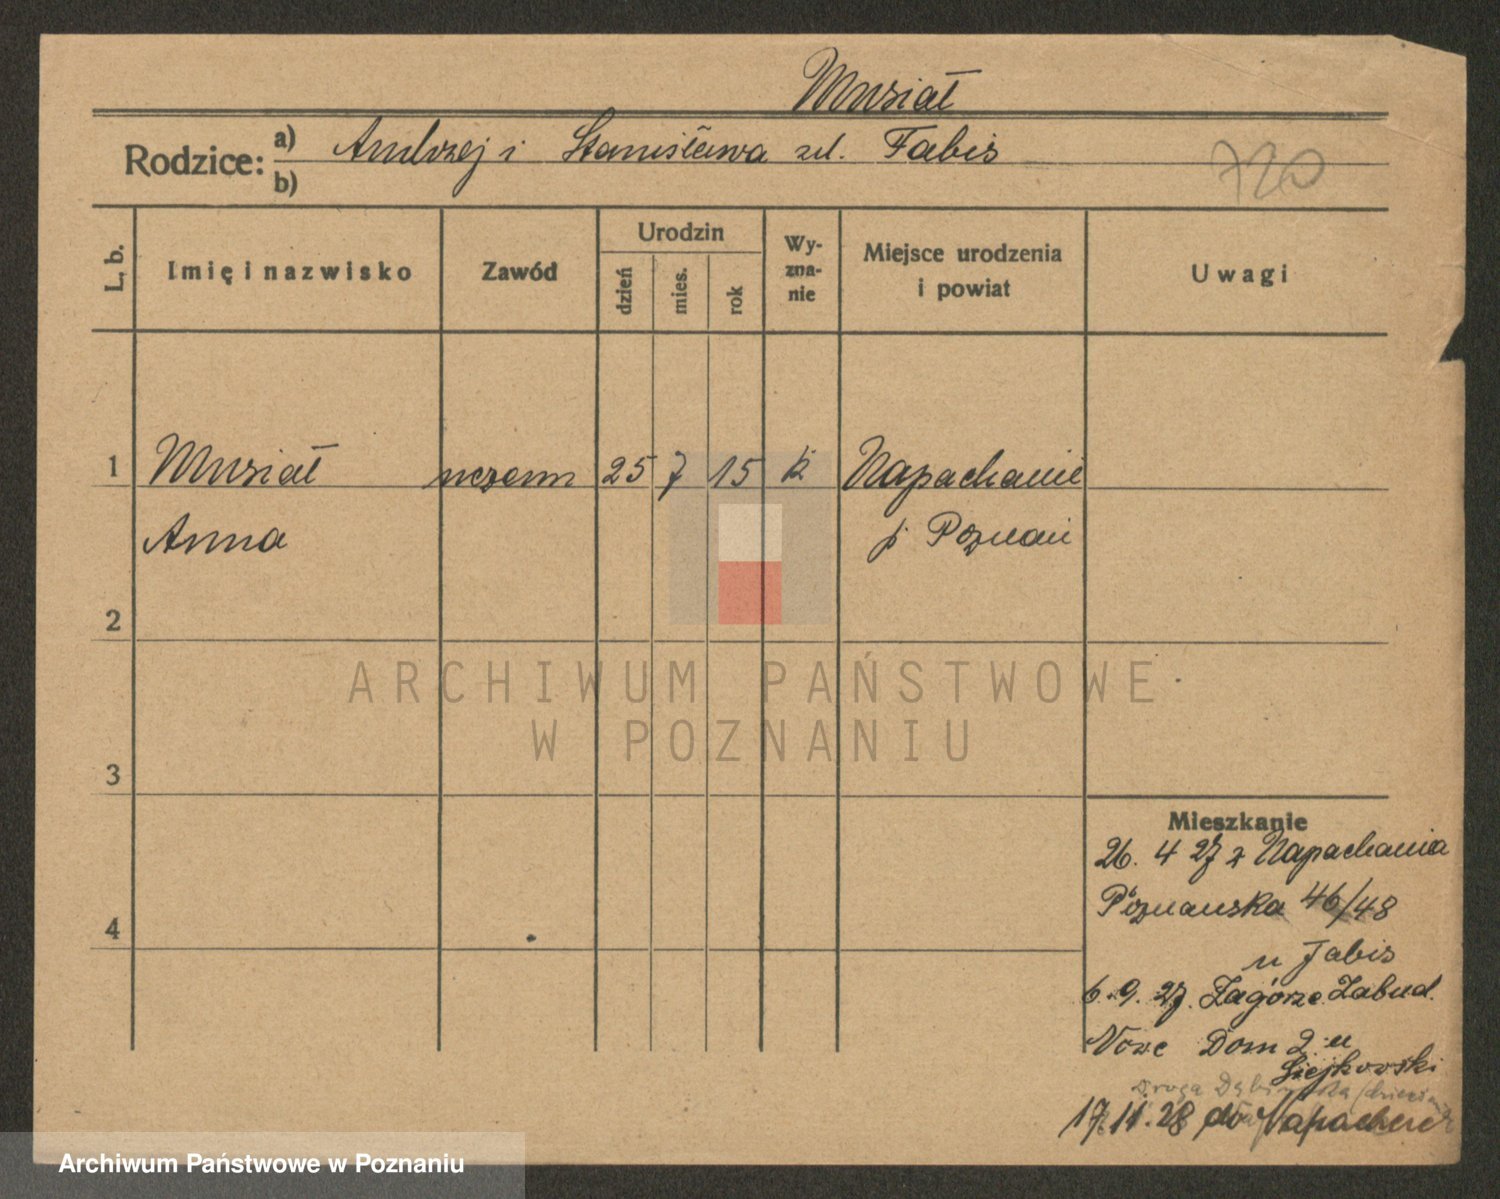 Musiał
Rodzice: a) Andrzej i Stanisława zd. Fabis
b)
720
L. b. Imię i nazwisko Zawód Urodzin dzień mies. rok Wyznanie Miejsce urodzenia i powiat Uwagi
1 Musiał uczenn 25 7 15 k Napachanie
Anna p Poznań
2
3
4
Mieszkanie
26. 4 27 z Napachania
Poznanska 46/48
u Fabis
6.9.27. Zagórze Zabud.
Nowe Dom 2 u
Droga
17.11.28 do
ARCHIWUM PAŃSTWOWE
W POZNANIU
Archiwum Państwowe w Poznaniu